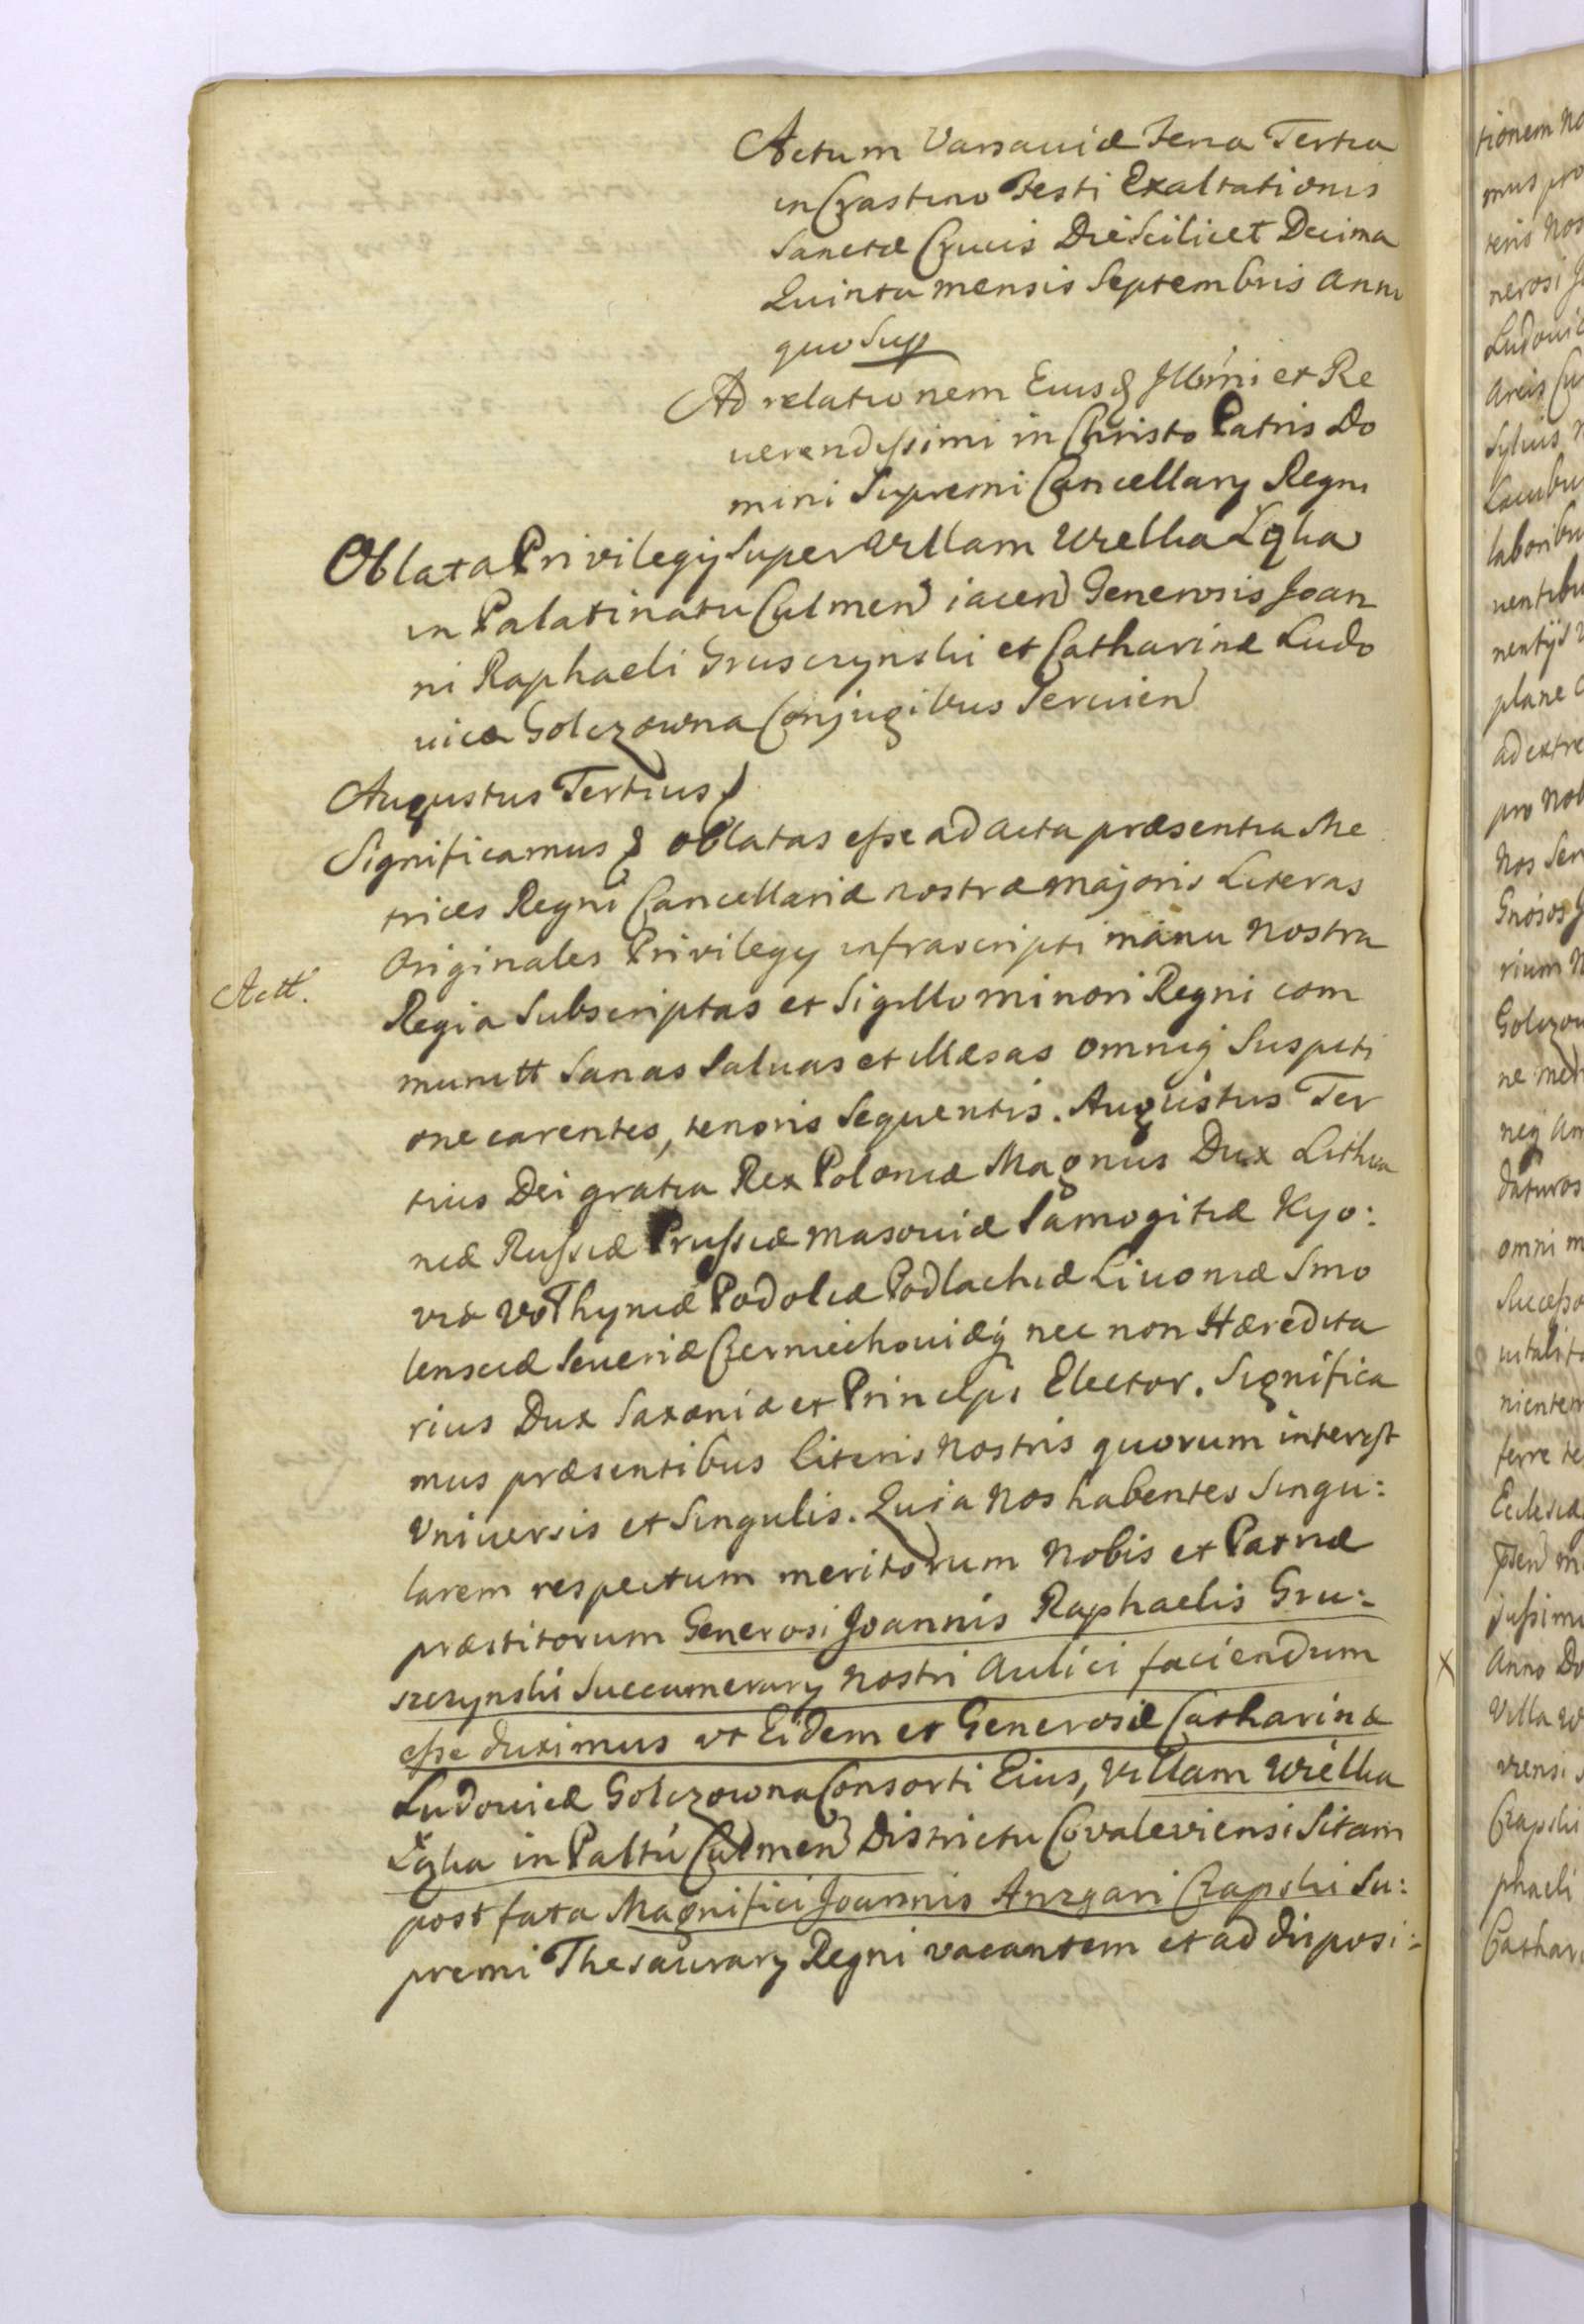 Actum Varsaviæ Feria Tertia
in Crastino Festi Exaltationis
Sanctæ Crucis Die Scilicet Decima
Quinta mensis Septembris Anni
quo Sup
Ad relationem Eiusd Illmi et Re
uerendissimi in Christo Patris Do
mini Supremi Cancellarij Regni
Oblata Privilegij Super Villam Wielka Łąka
in Palatinatu Culmen iacen Generosis Joan
ni Raphaeli Gruszczynski et Catharinæ Ludo
uicæ Golczowna Conjugibus Seruien
Augustus Tertius
Significamus & oblatas esse ad acta præsentia Me
trices Regni Cancellariæ nostræ majoris Literas
Originales Privilegij infrascripti manu nostra
Actt.
Regia Subscriptas et Sigillo minori Regni com
munitt Sanas Saluas et illæsas omniq Suspiti
one carentes, tenoris Sequentis. Augustus Ter
tius Dei gratia Rex Poloniæ Magnus Dux Lithua
niæ Russiæ Prussiæ Masouiæ Samogitiæ Kyo:
viæ Volhyniæ Podoliæ Podlachiæ Liuoniæ Smo
lensciæ Seueriæ Czerniechouiæq nec non Hæredita
rius Dux Saxoniæ et Princeps Elector. Significa
mus præsentibus Literis nostris quorum interest
Vniuersis et Singulis. Quia nos habentes Singu:
larem respectum meritorum nobis et Patriæ
præstitorum Generosi Joannis Raphaelis Gru:
szczynski Succamerarij nostri Aulici faciendum
esse duximus vt Eidem et Generosæ Catharinæ
Ludouicæ Golczowna Consorti Eius, Villam Wielka
Łąka in Paltu Culmen Districtu Covaleviensi Sitam
post fata Magnifici Joannis Anzgari Czapski Su:
premi Thesaurarij Regni vacantem et ad disposi: